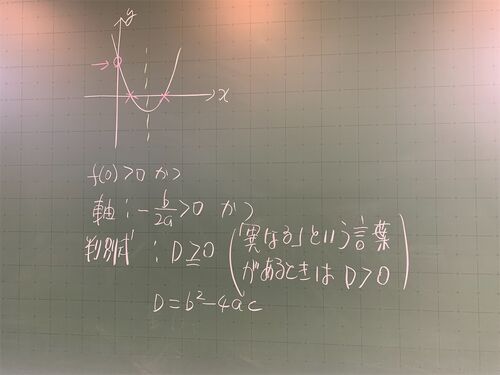 y
x
f(0)>0 かつ
軸：-b/2a>0 かつ
判別式：D≧0（「異なる」という言葉
があるときは D>0）
D=b²-4ac